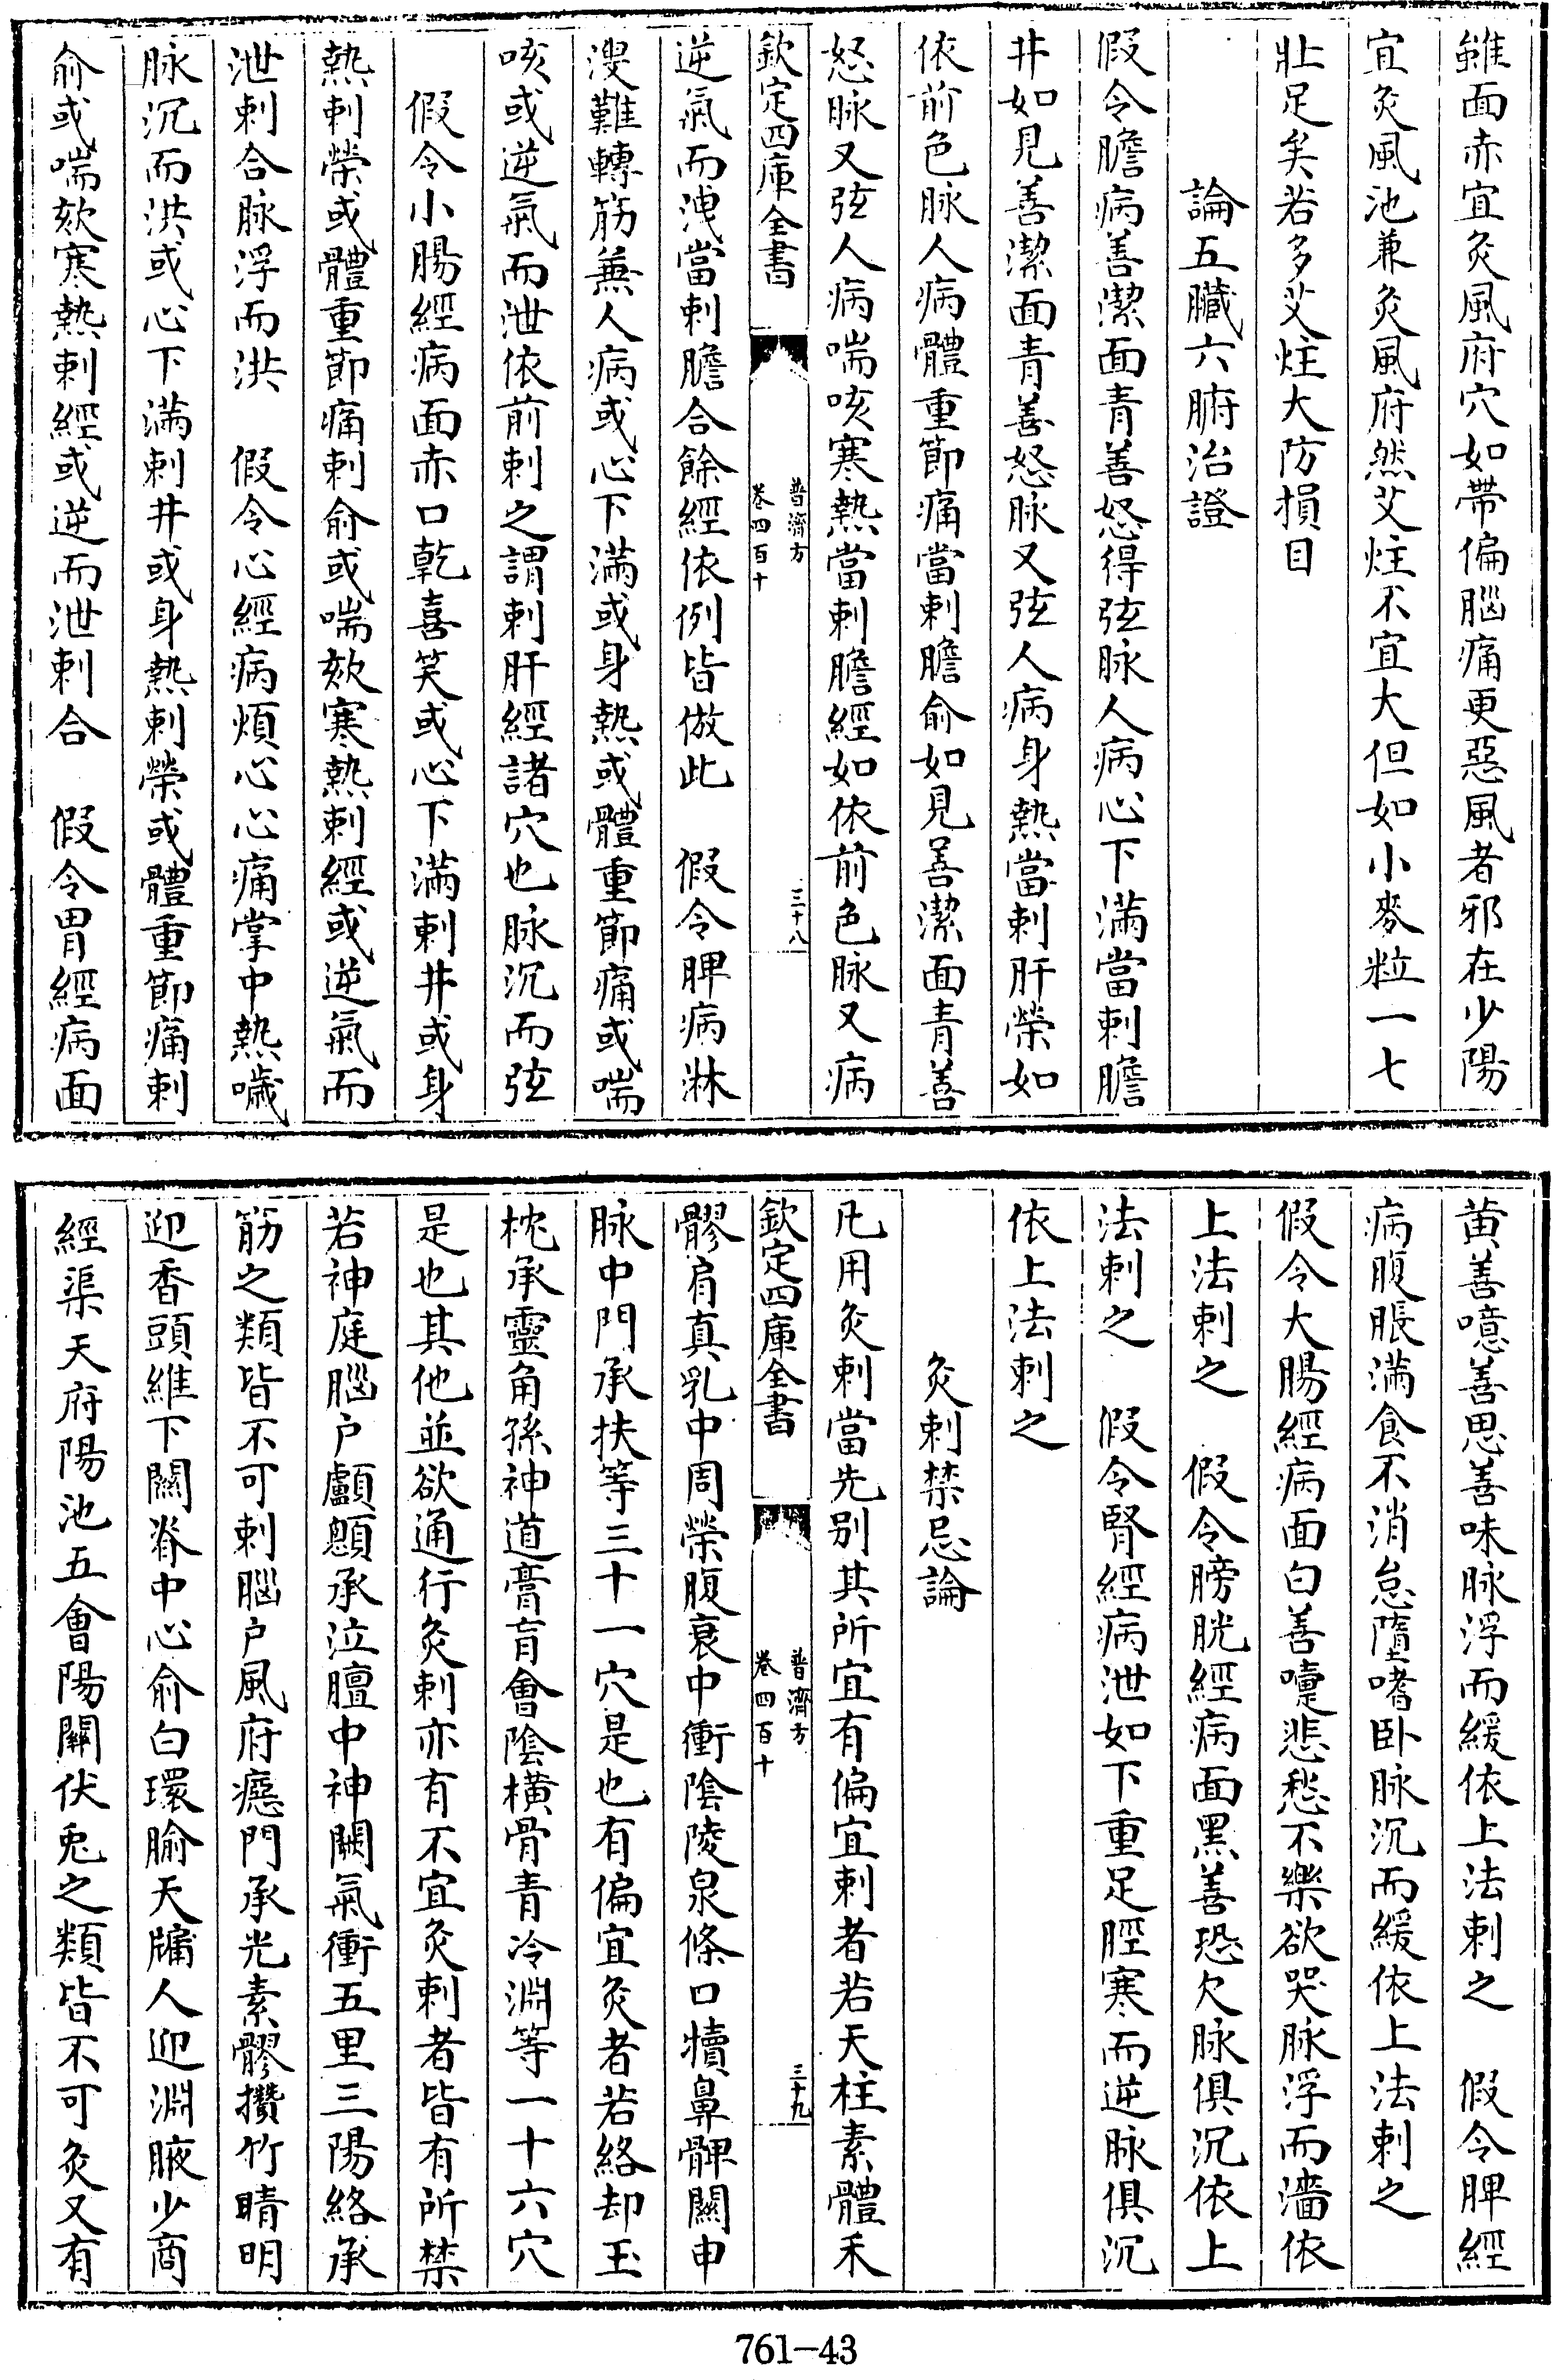 雖面赤宜灸風府穴如帶偏腦痛更惡風者邪在少陽
宜灸風池兼灸風府然艾炷不宜大但如小麥粒一七
壯足矣若多艾炷大防損目
論五臟六腑治證
假令膽病善潔面青善怒得弦脉人病心下滿當刺膽
井如見善潔面青善怒脉又弦人病身熱當刺肝榮如
依前色脉人病體重節痛當刺膽俞如見善潔面青善
怒脉又弦人病喘咳寒熱當刺膽經如依前色脉又病
欽定四庫全書
普濟方
卷四百十
三十八
逆氣而洩當刺膽合餘經依例皆倣此 假令脾病淋
溲難轉筋兼人病或心下滿或身熱或體重節痛或喘
咳或逆氣而泄依前刺之謂刺肝經諸穴也脉沉而弦
假令小腸經病面赤口乾喜笑或心下滿刺井或身
熱刺榮或體重節痛刺俞或喘欬寒熱刺經或逆氣而
泄刺合脉浮而洪 假令心經病煩心心痛掌中熱噦
脉沉而洪或心下滿刺井或身熱刺榮或體重節痛刺
俞或喘欬寒熱刺經或逆而泄刺合 假令胃經病面
黄善噫善思善味脉浮而緩依上法刺之 假令脾經
病腹脹滿食不消怠墮嗜卧脉沉而緩依上法刺之
假令大腸經病面白善嚏悲愁不樂欲哭脉浮而濇依
上法刺之 假令膀胱經病面黑善恐欠脉俱沉依上
法刺之 假令腎經病泄如下重足脛寒而逆脉俱沉
依上法刺之
灸刺禁忌論
凡用灸刺當先别其所宜有偏宜刺者若天柱素體禾
欽定四庫全書
普濟方
卷四百十
三十九
髎肩真乳中周榮腹哀中衝陰陵泉條口犢鼻髀關申
脉中門承扶等三十一穴是也有偏宜灸者若絡却玉
枕承靈角孫神道膏肓會陰橫骨青冷淵等一十六穴
是也其他並欲通行灸刺亦有不宜灸刺者皆有所禁
若神庭腦户顱顖承泣膻中神闕氣衝五里三陽絡承
筋之類皆不可刺腦户風府瘂門承光素髎攢竹睛明
迎香頭維下關脊中心俞白環腧天牖人迎淵腋少商
經渠天府陽池五會陽關伏兎之類皆不可灸又有
761-43